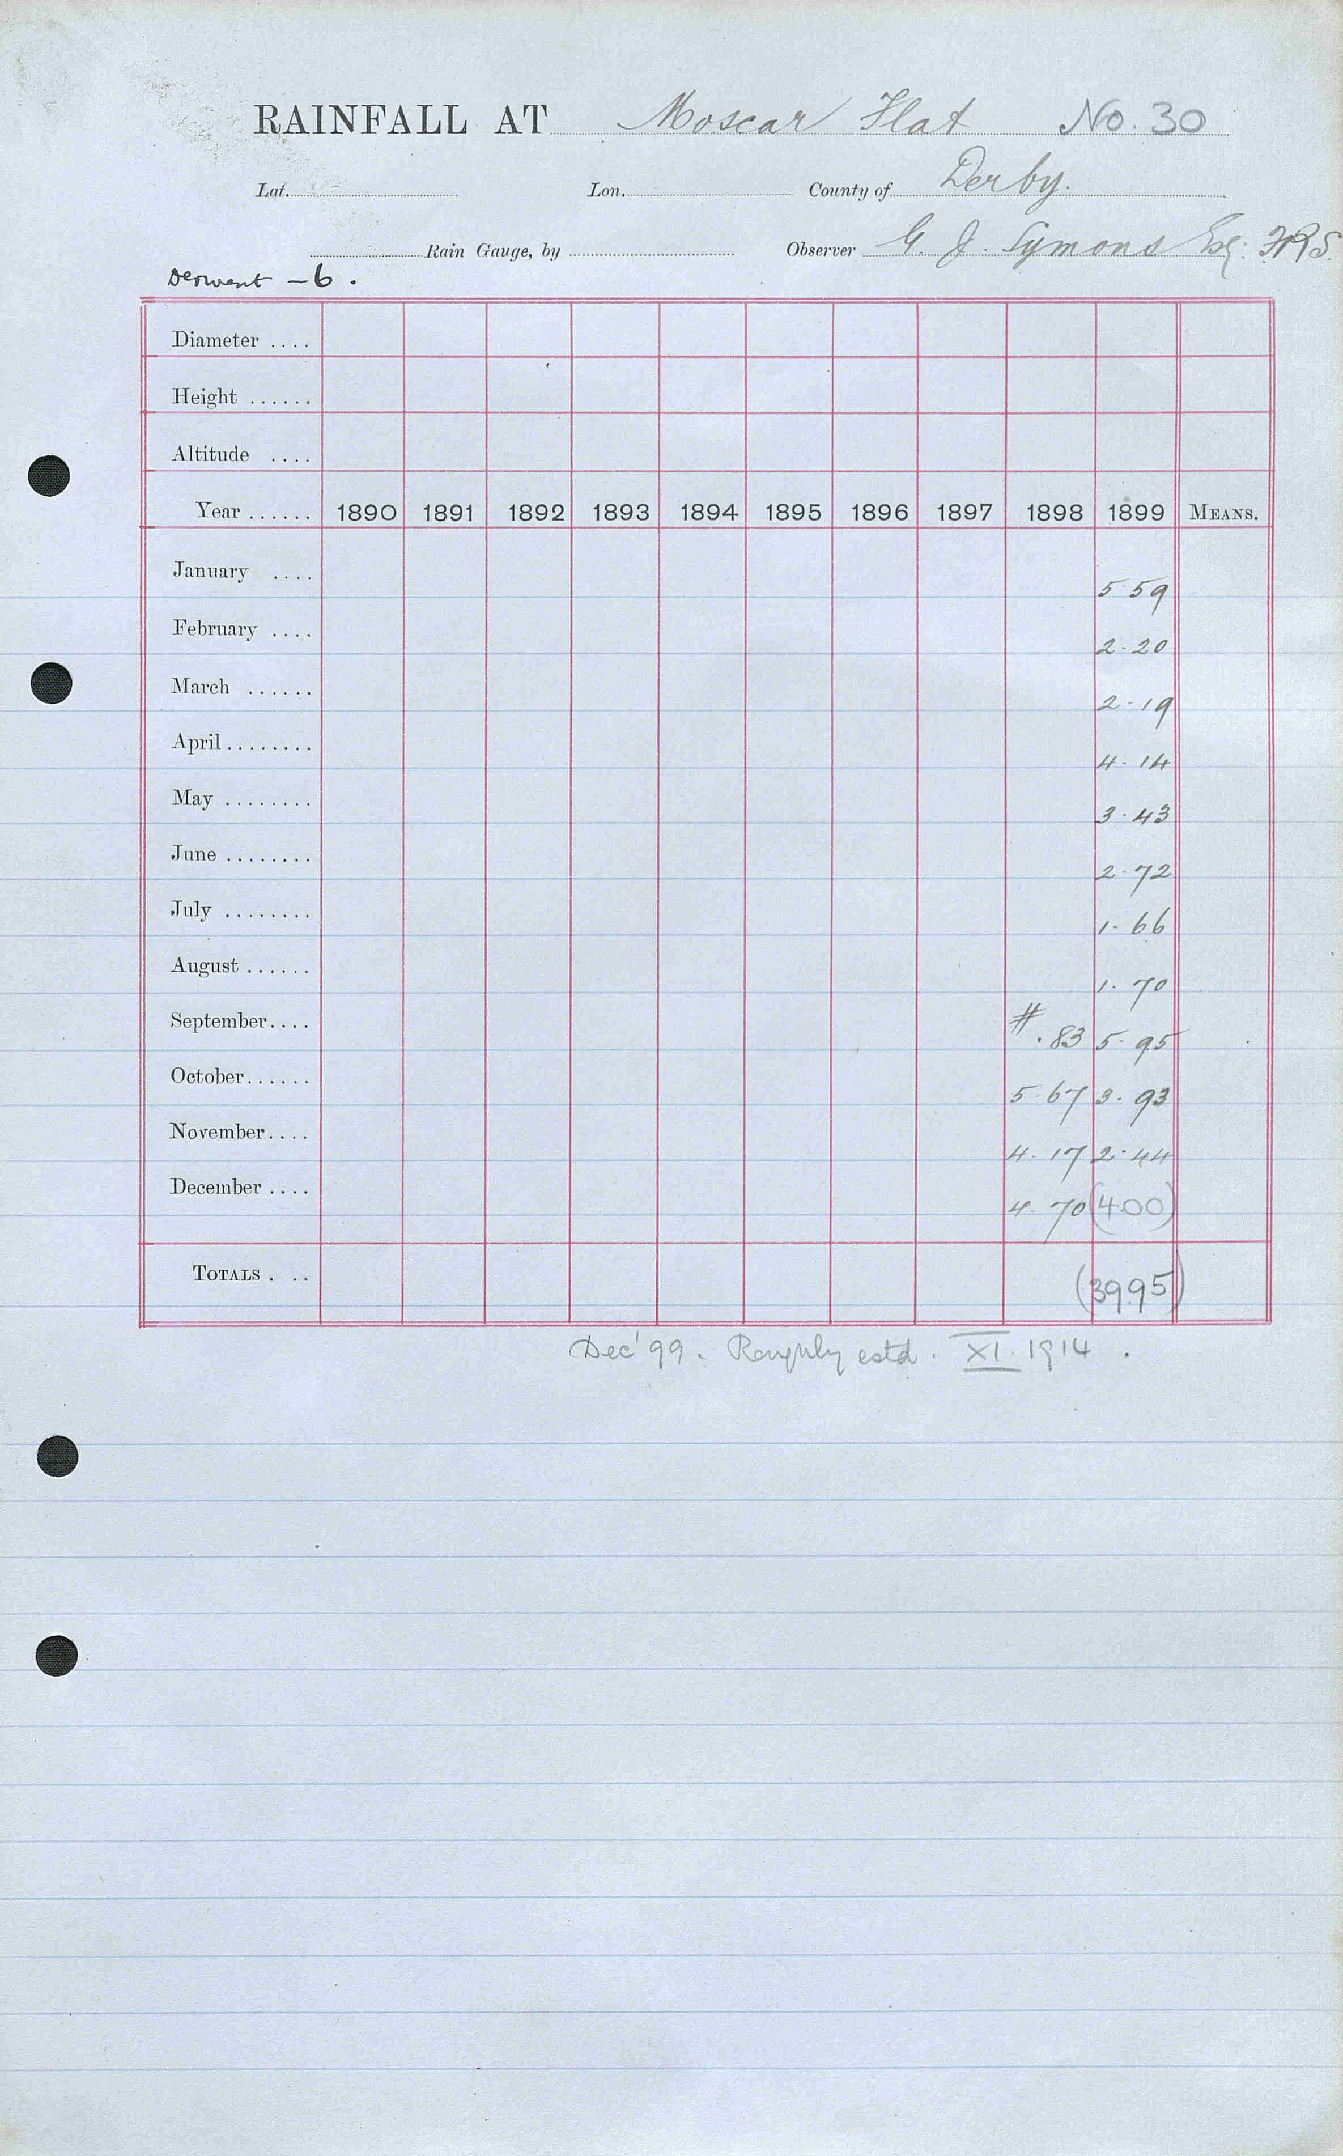 RAINFALL AT Moscar Flat No. 30
Lat. Lon. County of Derby.
Rain Gauge, by Observer G. J. Symons Esq. FRS.
Derwent - 6.
Diameter ....
Height ......
Altitude ....
Year ...... 1890 1891 1892 1893 1894 1895 1896 1897 1898 1899 MEANS.
January .... 5.59
February .... 2.20
March ...... 2.19
April ........ 4.14
May ........ 3.43
June ........ 2.72
July ........ 1.66
August ...... 1.70
September .... # .83 5.95
October ...... 5.67 3.93
November .... 4.17 2.44
December .... 4.70 (4.00)
TOTALS . .. (39.95)
Dec' 99. Roughly estd. XI. 1914.